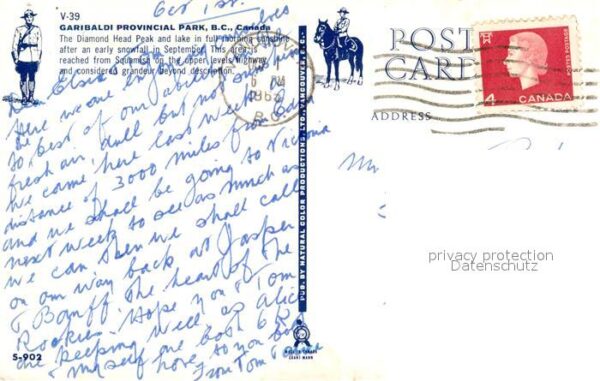 Oct 1st.
V-39
GARIBALDI PROVINCIAL PARK, B.C., Canada
The Diamond Head Peak and lake in full morning sunshine
after an early snowfall in September. This area is
reached from Squamish on the upper levels highway
and considered grandeur beyond description.
Dear Elsie
here we are
to best of our ability
fresh air, dull but not
we came here last week
distance of 3000 miles from
and we shall be going to Victoria
next week to see as much as
we can then we shall call
on our way back at Jasper
& Banff the heart of the
Rockies. Hope you & Tom
are keeping well as Alice
& myself are both O.K.
love to you both
From Tom
S-902
PUB. BY NATURAL COLOR PRODUCTIONS LTD., VANCOUVER, B.C.
MADE IN CANADA
PM
1963
B.C.
POST
CARD
ADDRESS
4 CANADA
POSTES POSTAGE
privacy protection
Datenschutz